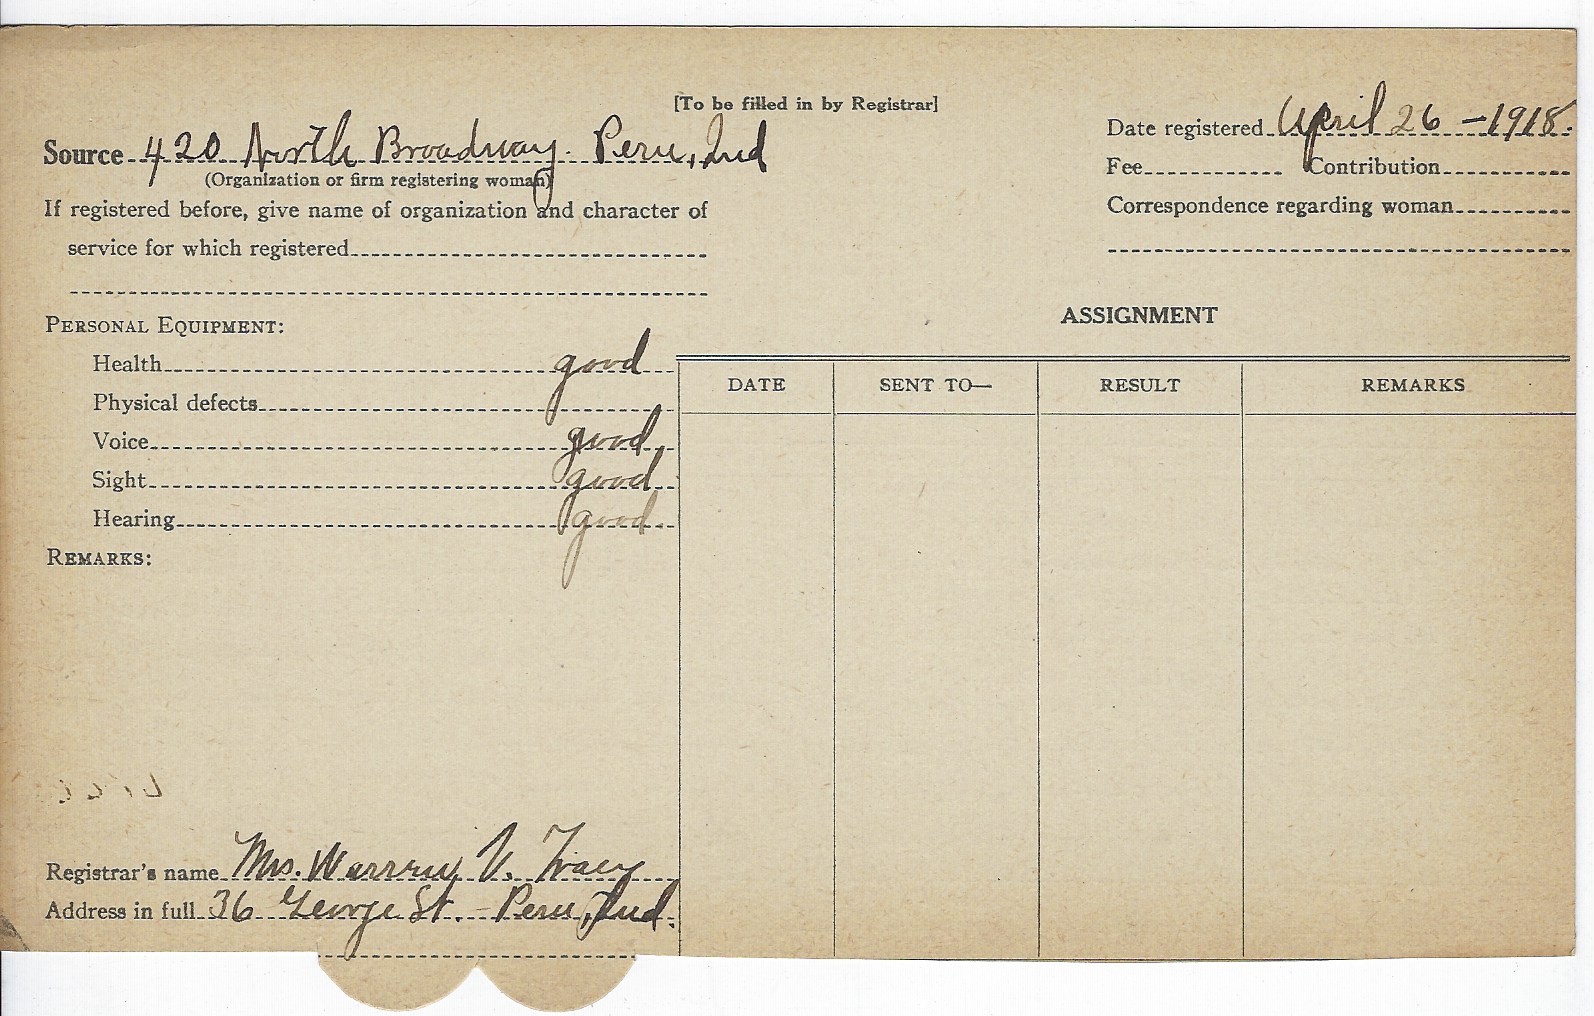 [To be filled in by Registrar]
Source 420 North Broadway. Peru, Ind
(Organization or firm registering woman)
If registered before, give name of organization and character of
service for which registered
Date registered April 26 - 1918.
Fee Contribution
Correspondence regarding woman
PERSONAL EQUIPMENT:
Health good
Physical defects
Voice good
Sight good
Hearing good
REMARKS:
ASSIGNMENT
DATE SENT TO— RESULT REMARKS
Registrar's name Mrs. Warren V. Tracy
Address in full 36 George St. - Peru, Ind.